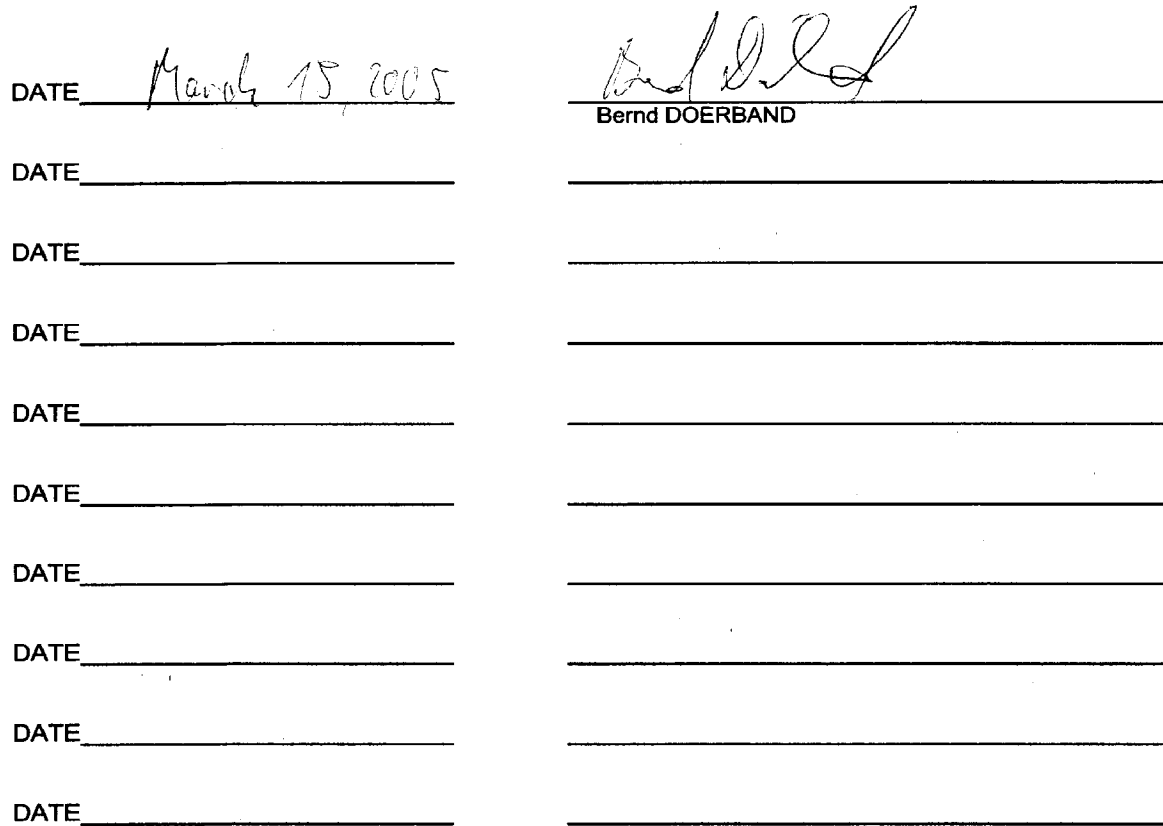 DATE March 15, 2005
Bernd DOERBAND
DATE
DATE
DATE
DATE
DATE
DATE
DATE
DATE
DATE